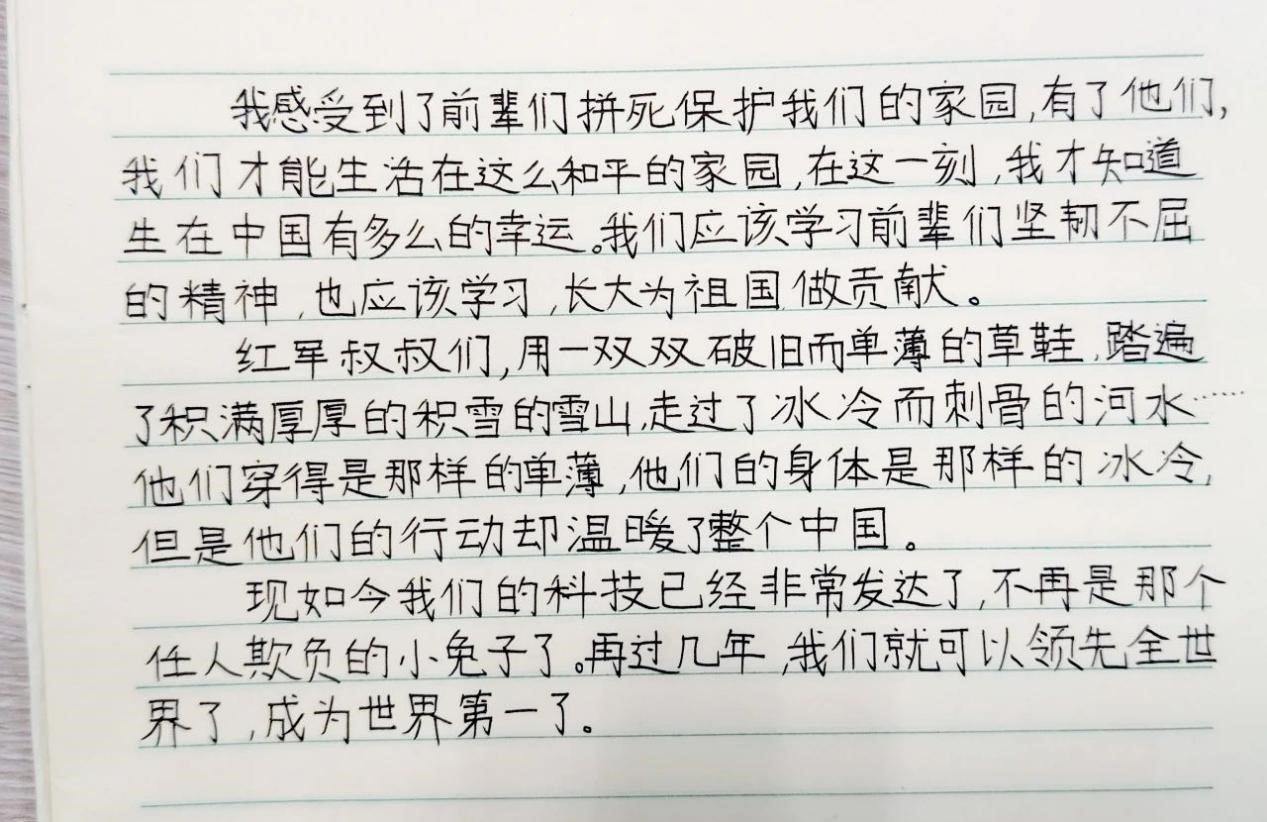 我感受到了前辈们拼死保护我们的家园,有了他们,
我们才能生活在这么和平的家园,在这一刻,我才知道
生在中国有多么的幸运。我们应该学习前辈们坚韧不屈
的精神,也应该学习,长大为祖国做贡献。
红军叔叔们,用一双双破旧而单薄的草鞋,踏遍
了积满厚厚的积雪的雪山,走过了冰冷而刺骨的河水……
他们穿得是那样的单薄,他们的身体是那样的冰冷,
但是他们的行动却温暖了整个中国。
现如今我们的科技已经非常发达了,不再是那个
任人欺负的小兔子了。再过几年,我们就可以领先全世
界了,成为世界第一了。